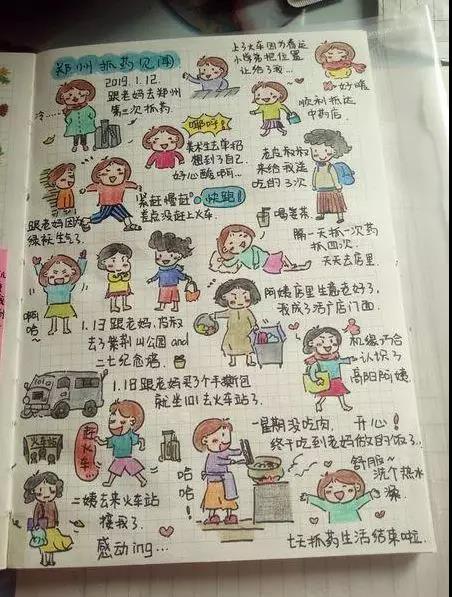 郑州抓药见闻
2019.1.12.
跟老妈去郑州
第三次抓药.
冷
上了火车因为看这
小学弟把位置
让给了我…
好暖
顺利抵达
中药店.
嘟呼!
美术生去单招
想到了自己
好心酸啊…
老皮叔叔
来给我送
吃的了次
紧赶慢赶。
差点没赶上火车.
快跑!
跟老妈因为
绿袄生气了.
喝羹茶.
隔一天抓一次药
抓四次.
天天去店里.
啊哈~
1.13跟老妈,皮叔
去了紫荆山公园and
二七纪念塔
阿姨店里生意老好了,
我成了活广店门面.
机缘巧合
认识了
高阳阿姨.
1.18跟老妈买了个手撕包
就坐101去火车站了.
火车站
赶火车
哈哈!
一星期没吃肉, 开心!
终于吃到老妈做的饭了.
舒服~
洗个热水
澡.
二姨去来火车站
接我了.
感动ing…
七天抓药生活结束啦.